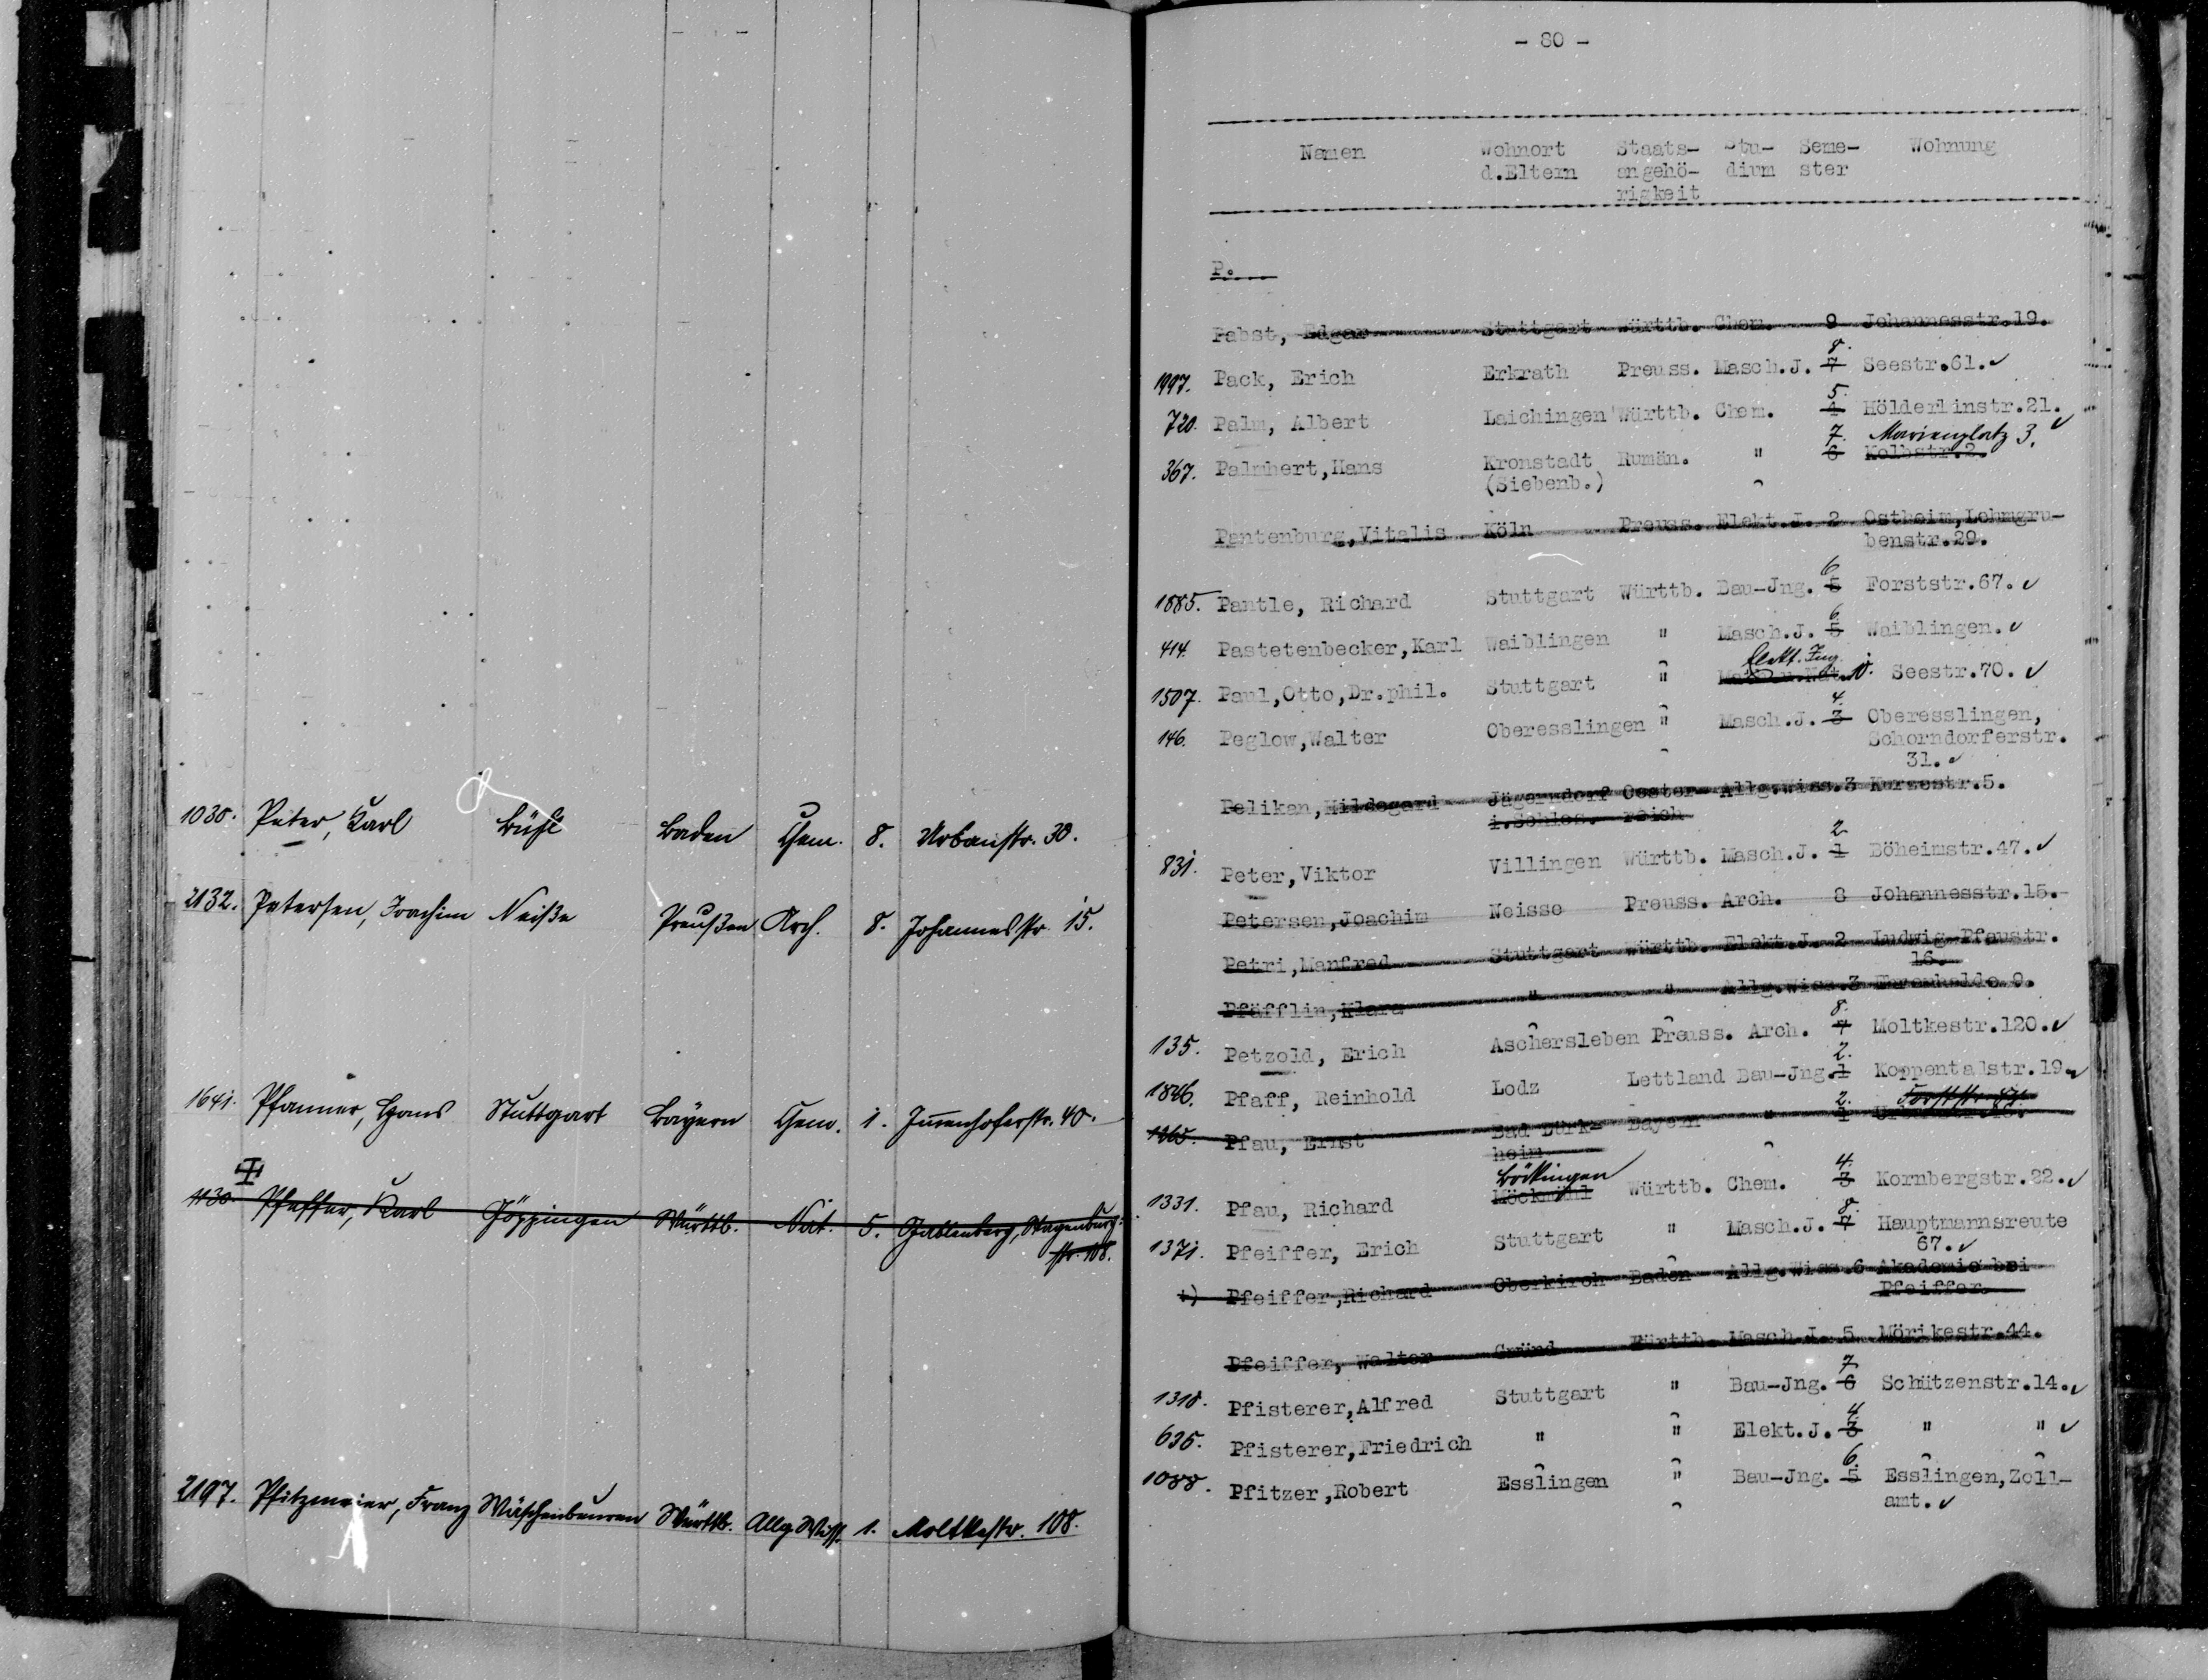 1030. Peter, Karl Bühl Baden Chem. 8. Urbanstr. 30.
2132. Petersen, Joachim Neiße Preußen Arch. 8. Johannesstr. 15.
1641. Pfanner, Hans Stuttgart Bayern Chem. 1. Immenhoferstr. 40.
1130. Pfeffer, Karl Göppingen Württb. Nat. 5. Gablenberg, Stagenburg-
str. 108.
2197. Pfitzmaier, Franz Wäschenbeuren Württb. Allg. Wiss. 1. Moltkestr. 108.
- 80 -
Namen Wohnort Staats- Stu- Seme- Wohnung
d.Eltern angehö- dium ster
rigkeit
P.
Pabst, Edgar Stuttgart Württb. Chem. 9 Johannesstr.19.
8.
1997. Pack, Erich Erkrath Preuss. Masch.J. 7 Seestr.61. ✓
5.
720. Palm, Albert Laichingen Württb. Chem. 4 Hölderlinstr.21. ✓
7. Marienplatz 3.
367. Palmhert,Hans Kronstadt Rumän. " 6 Kolbstr.2.
(Siebenb.)
Pantenburg,Vitalis Köln Preuss. Elekt.J. 2 Ostheim,Lehmgru-
benstr.29.
6
1885. Pantle, Richard Stuttgart Württb. Bau-Jng. 5 Forststr.67. ✓
6.
414. Pastetenbecker,Karl Waiblingen " Masch.J. 5 Waiblingen. ✓
Elekt. Ing.
1507. Paul,Otto,Dr.phil. Stuttgart " Seestr.70. ✓
4.
146. Peglow,Walter Oberesslingen " Masch.J. 3 Oberesslingen,
Schorndorferstr.
31. ✓
Pelikan,Hildegard Jägerndorf Oester- Allg.Wiss.3 Kurzestr.5.
i.Schles. reich
2
831. Peter,Viktor Villingen Württb. Masch.J. 1 Böheimstr.47. ✓
Petersen,Joachim Neisse Preuss. Arch. 8 Johannesstr.15.
Petri,Manfred Stuttgart Württb. Elekt.J. 2 Ludwig-Pfaustr.
16.
Pfäfflin,Klara " " Allg.Wiss.3 9.
8.
135. Petzold, Erich Aschersleben Preuss. Arch. 7 Moltkestr.120. ✓
2.
1846. Pfaff, Reinhold Lodz Lettland Bau-Jng.1 Koppentalstr.19. ✓
2. Forststr.
Pfau, Ernst Bad Dürk- Bayern " 1
heim
Böckingen 4.
1331. Pfau, Richard Möckmühl Württb. Chem. 3 Kornbergstr.22. ✓
8.
1371. Pfeiffer, Erich Stuttgart " Masch.J. 7 Hauptmannsreute
67. ✓
t) Pfeiffer,Richard Oberkirch Baden Allg.Wiss.6 Akademie bei
Pfeiffer
Pfeiffer, Walter Gmünd Württb. Masch.J. 5 Mörikestr.44.
7
1318. Pfisterer,Alfred Stuttgart " Bau-Jng. 6 Schützenstr.14. ✓
4.
635. Pfisterer,Friedrich " " Elekt.J. 3 " " ✓
6.
1088. Pfitzer,Robert Esslingen " Bau-Jng. 5 Esslingen,Zoll-
amt. ✓